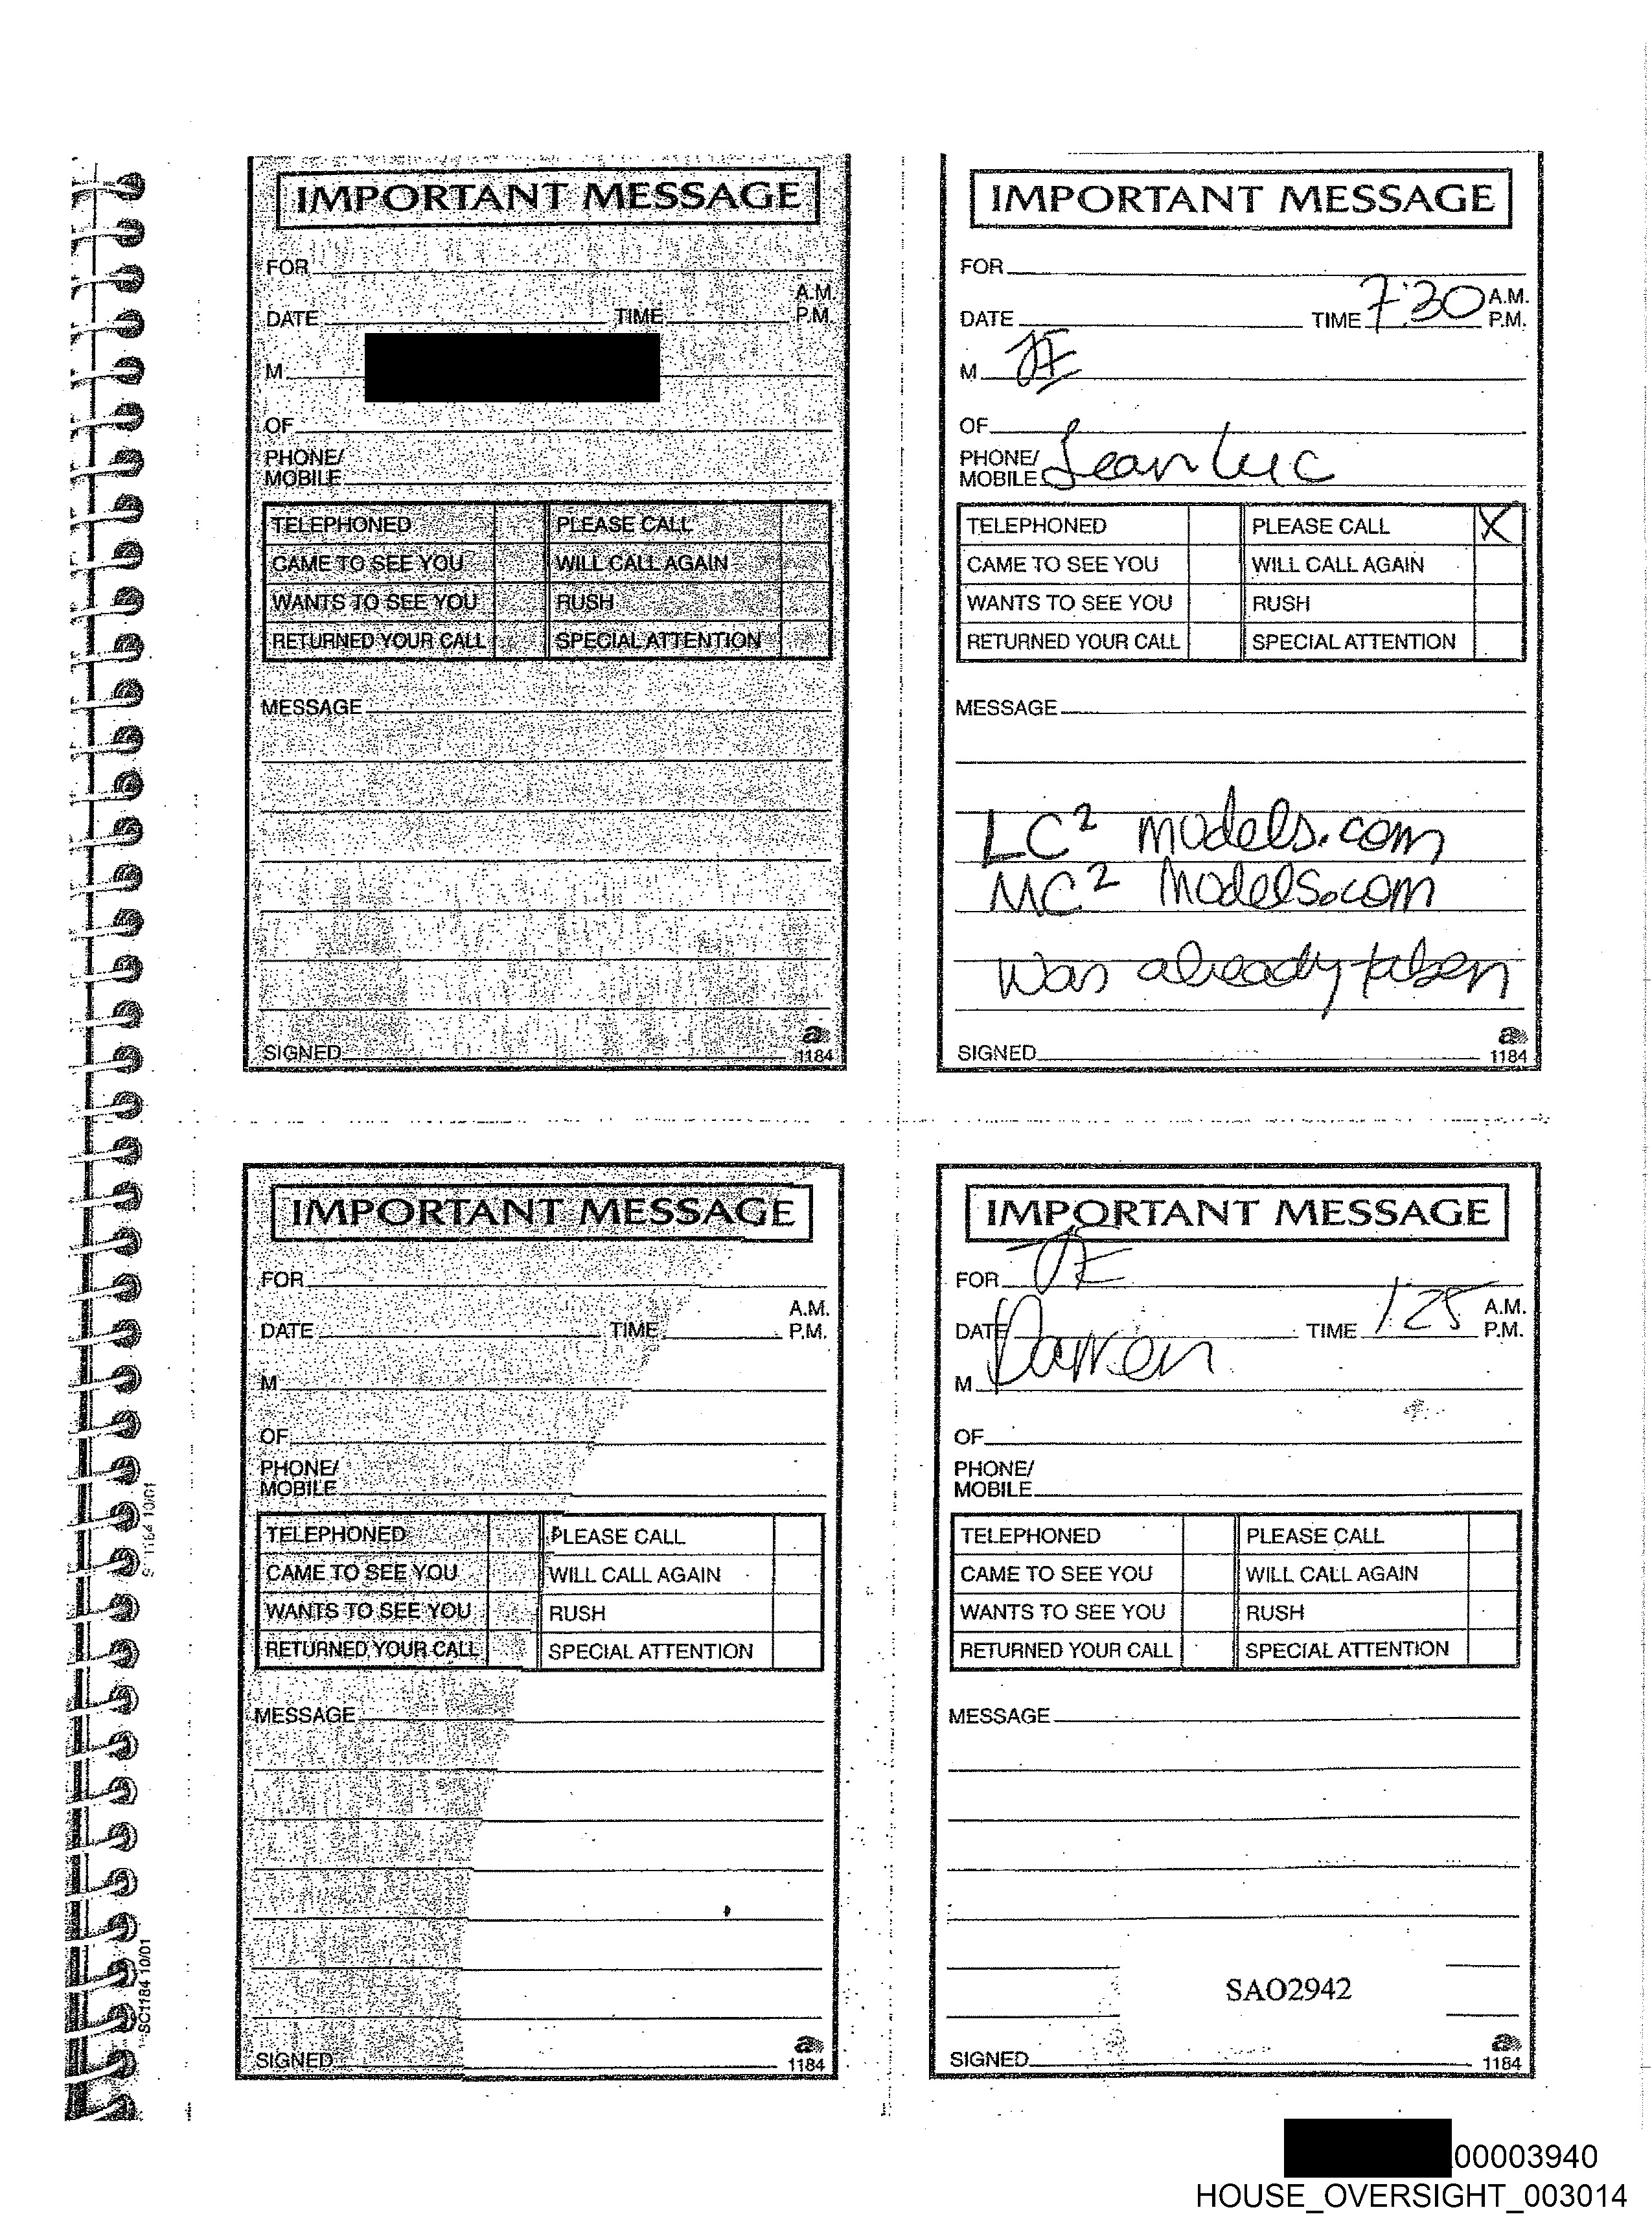 IMPORTANT MESSAGE
FOR
A.M.
DATE TIME P.M.
M
OF
PHONE/
MOBILE
TELEPHONED PLEASE CALL
CAME TO SEE YOU WILL CALL AGAIN
WANTS TO SEE YOU RUSH
RETURNED YOUR CALL SPECIAL ATTENTION
MESSAGE
SIGNED
a
1184
IMPORTANT MESSAGE
FOR
A.M.
DATE TIME 7:30 P.M.
M JE
OF
PHONE/
MOBILE Jean Luc
TELEPHONED PLEASE CALL X
CAME TO SEE YOU WILL CALL AGAIN
WANTS TO SEE YOU RUSH
RETURNED YOUR CALL SPECIAL ATTENTION
MESSAGE
LC² models.com
MC² Models.com
was already taken
SIGNED
a
1184
IMPORTANT MESSAGE
FOR
A.M.
DATE TIME P.M.
M
OF
PHONE/
MOBILE
TELEPHONED PLEASE CALL
CAME TO SEE YOU WILL CALL AGAIN
WANTS TO SEE YOU RUSH
RETURNED YOUR CALL SPECIAL ATTENTION
MESSAGE
SIGNED
a
1184
IMPORTANT MESSAGE
FOR JE
A.M.
DATE TIME 1:25 P.M.
M Darren
OF
PHONE/
MOBILE
TELEPHONED PLEASE CALL
CAME TO SEE YOU WILL CALL AGAIN
WANTS TO SEE YOU RUSH
RETURNED YOUR CALL SPECIAL ATTENTION
MESSAGE
SAO2942
SIGNED
a
1184
SC1184 10/01
00003940
HOUSE_OVERSIGHT_003014